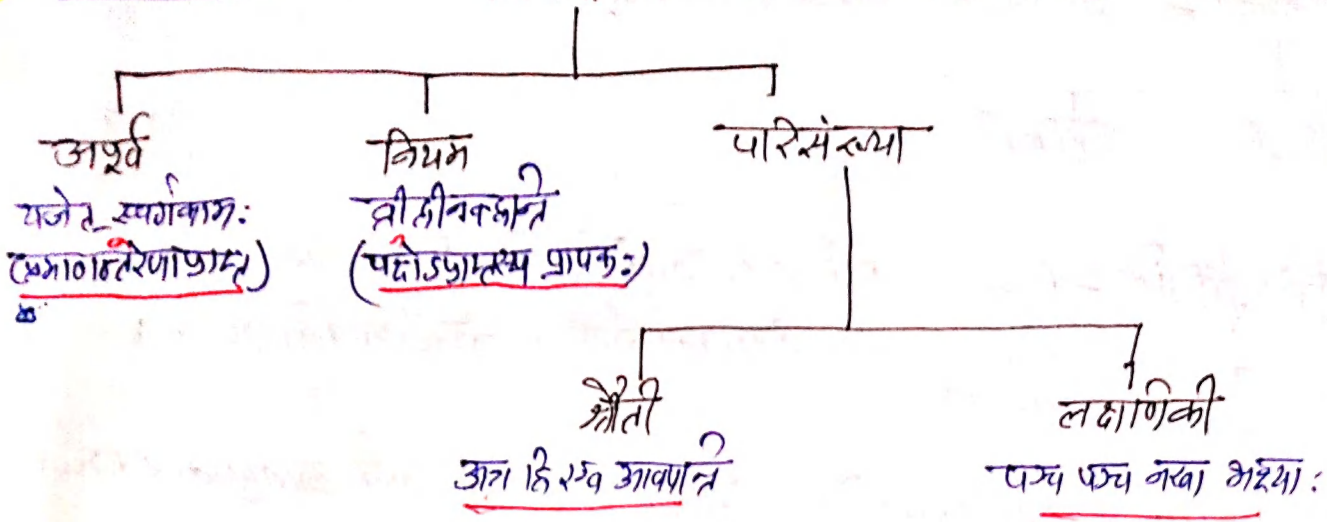 अपूर्व
यजेत स्वर्गकामः
(प्रमाणान्तरेणाप्राप्त)
नियम
व्रीहीनवहन्ति
(पक्षेऽप्राप्तस्य प्रापकः)
परिसंख्या
श्रौती
अत्र हि एव आवपन्ति
लक्षाणिकी
पञ्च पञ्च नखा भक्ष्या: